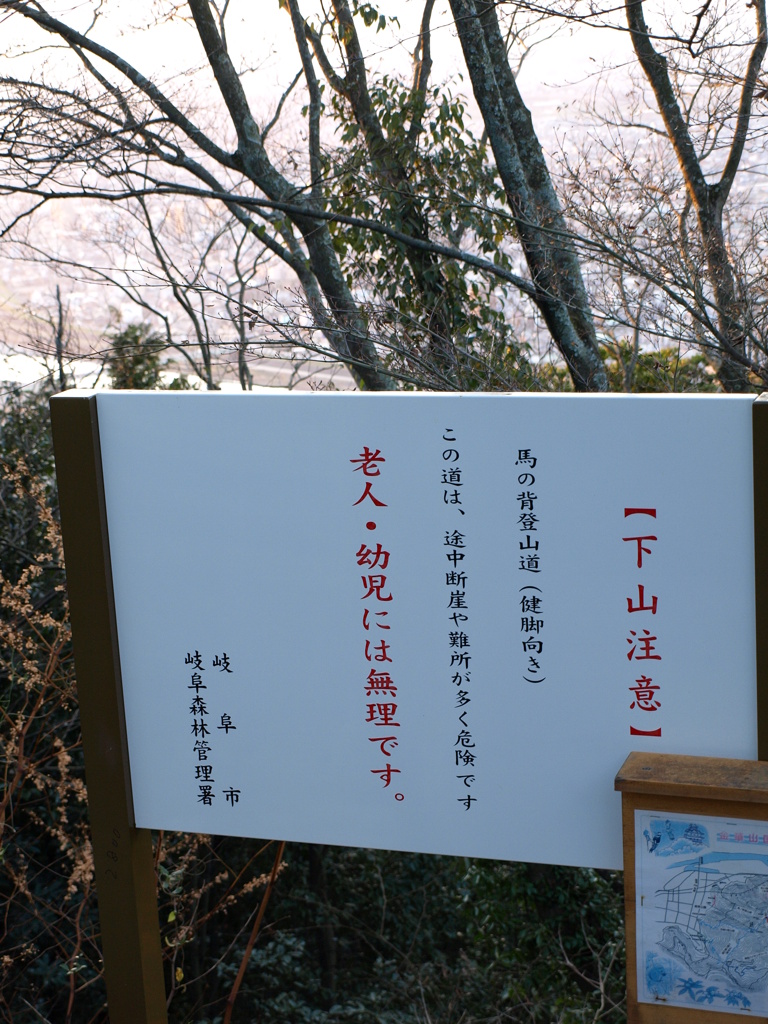 【下山注意】
馬の背登山道(健脚向き)
この道は、途中断崖や難所が多く危険です
老人・幼児には無理です。
岐阜市
岐阜森林管理署